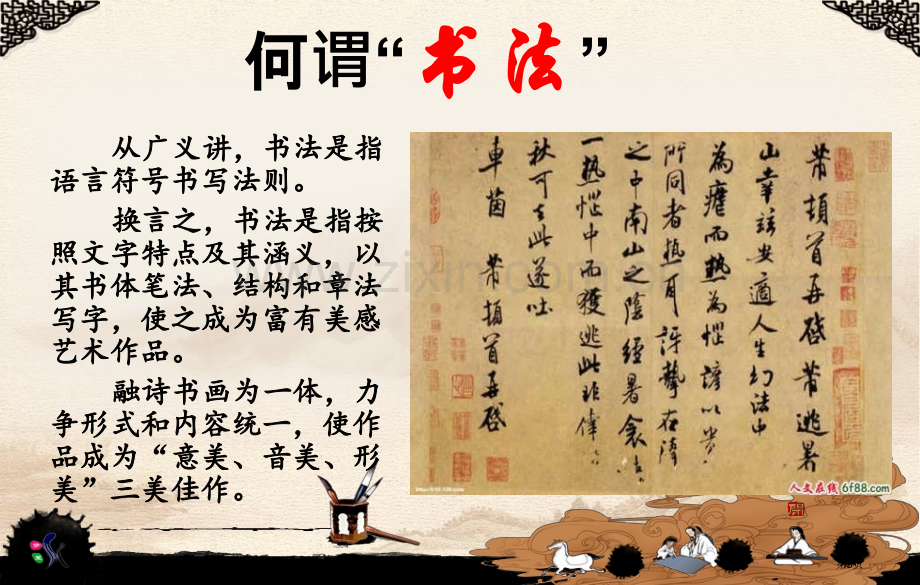 何谓“书法”
从广义讲，书法是指
语言符号书写法则。
换言之，书法是指按
照文字特点及其涵义，以
其书体笔法、结构和章法
写字，使之成为富有美感
艺术作品。
融诗书画为一体，力
争形式和内容统一，使作
品成为“意美、音美、形
美”三美佳作。
芾頓首再啓芾逃暑
山幸兹安適人生幻法中
為瘧而熱為惱諺以貴
所同者熱耳訝摯在陽
之中南山之陰經暑衾
一熱惱中而獲逃此非偉
秋可去此遂吐
車茵 芾頓首再啓
人文在线 6f88.com
www.zixin.com.cn